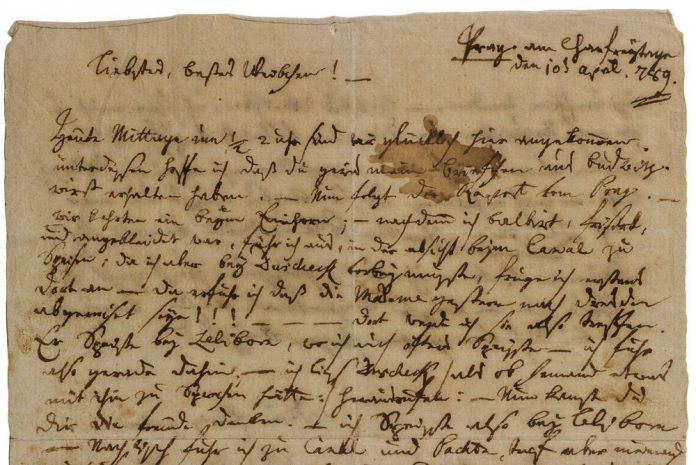 Prag am Charfreytage
den 10:t April. 789.
Liebstes, bestes Weibchen! —
Heute Mittags um ½ 2 uhr sind wir glücklich hier angekommen.
unterdessen hoffe ich daß du gewis mein briefchen aus budwitz
wirst erhalten haben. — Nun folgt der Raport von Prag. —
wir kehrten ein beym Einhorn; — nachdem ich balbirt, frisirt,
und angekleidet war, fuhr ich aus, in der absicht beym Canal zu
Speisen; da ich aber bey Duscheck vorbey musste, frug ich erstens
dort an — da erfuhr ich daß die Madame gestern nach dresden
abgereiset seye!!! — — — dort werde ich sie also treffen.
Er Speiste bey Leliborn, wo ich auch öfters Speiste — ich fuhr
also gerade dahin. — ich lies Duscheck /als ob Jemand etwas
mit ihm zu Sprechen hätte:/ herausrufen: — Nun kanst du
dir die freude denken. — ich Speiste also bey Leliborn
— Nach tisch fuhr ich zu Canal und Pachta, traf aber niemand